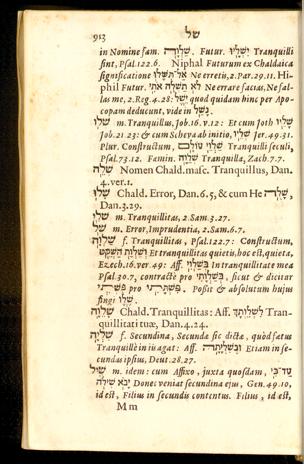 913 של
in Nomine fam. שַׁלְוָה. Futur. יִשְׁלָיוּ Tranquilli
sint, Psal. 122. 6. Niphal Futurum ex Chaldaica
significatione אַל־תִּשָּׁלוּ Ne erretis, 2. Par. 29. 11. Hi-
phil Futur. לֹא תַשְׁלֶה אֹתִי Ne errare facias, Ne fal-
las me, 2. Reg. 4. 28: quod quidam hinc per Apo-
copam deducunt, vide in
m. Tranquillus, Job. 16. v. 12: Et cum Joth
Job 21. 23: & cum Scheva ab initio, Jer. 49. 31.
Plur. Constructum, Tranquilli seculi,
Psal. 73. 12. Famin. Tranquilla, Zach. 7. 7.
Nomen Chald. masc. Tranquillus, Dan.
4. ver. 1.
Chald. Error, Dan. 6. 5, & cum He
Dan. 3. 29.
m. Tranquillitas, 2. Sam. 3. 27.
m. Error, Imprudentia, 2. Sam. 6. 7.
שַׁלְוָה f. Tranquillitas, Psal. 122. 7: Constructum,
וְשַׁלְוַת הַשְׁקֵט Et tranquillitas quietis, hoc est, quieta,
Ezech. 16. ver. 49: Aff. In tranquillitate mea
Psal. 30. 7, contractè pro sicut & dicitur
pro Possit & absolutum hujus
fingi
Chald. Tranquillitas: Aff. Tran-
quillitati tuæ, Dan. 4. 24.
f. Secundina, Secunda sic dicta, quòd fœtus
Tranquillè in iis agat: Aff. Etiam in se-
cundas ipsius, Deut. 28. 27.
m. idem: cum Affixo, juxta quosdam, עַד־כִּי
יָבֹא שִׁילֹה Donec veniat secundina ejus, Gen. 49. 10,
id est, Filius in secundis contentus. Filius, id est,
M m